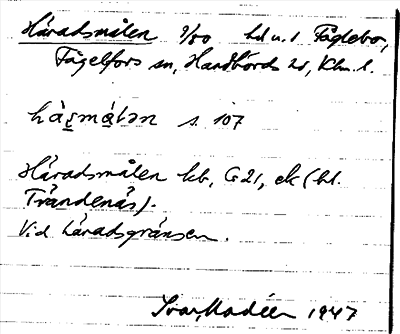 Häradsmålen 9/00 hd u. 1 Fåglebo,
Fågelfors sn, Handbörds hd, Klm. l.
hàrmå̀lən s. 107
Häradsmålen kb, G 21, ek (bl.
Trändenäs).
Vid häradsgränsen.
Ivar Modéer 1947